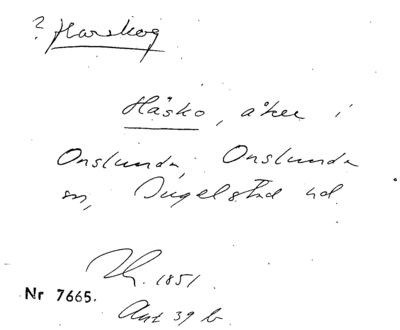 ? Harskog
Håsko, åker i
Onslunda, Onslunda
sn, Ingelstad hd.
1851.
Nr 7665.
39 b.